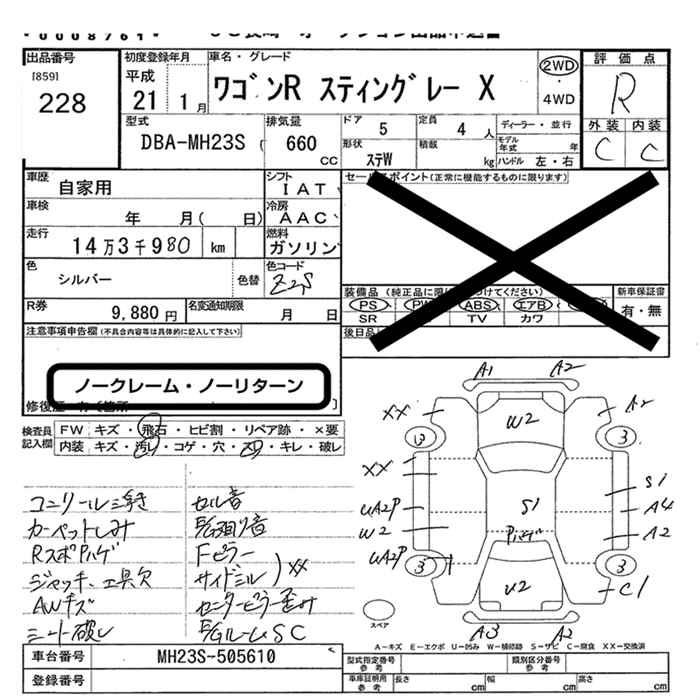 出品番号
[859]
228
初度登録年月
平成
21 1月
車名・グレード
ワゴンR スティングレー X
2WD
4WD
評価点
R
外装 内装
C C
型式
DBA-MH23S
排気量
660
cc
ドア
5
定員
4 人
ディーラー・並行
モデル年式 年
形状
ステW
積載
kg
ハンドル 左・右
車歴
自家用
シフト
IAT
車検
年 月( 日)
冷房
AAC
走行
14万3千980 km
燃料
ガソリン
色
シルバー
色替
色コード
Z2S
R券
9,880円
名変通知期限
月 日
セールスポイント(正常に機能するものに限ります)
装備品
PS PW ABS エアB
SR TV カワ
新車保証書
有・無
後日品
注意事項申告欄(不具合内容等は具体的に記入して下さい)
ノークレーム・ノーリターン
検査員記入欄
FW キズ・飛石・ヒビ割・リペア跡・×要
内装 キズ・汚レ・コゲ・穴・スレ・キレ・破レ
カーペットしみ
ジャッキ、工具欠
AWキズ
シート破レ
セル音
Fピラー
サイドシル
XX
A1 A2
XX W2 A2
3
XX
UA2P S1 S1 A4
W2 A2
UA2P 3 3
U2 C1
A3 A2
スペア
A-キズ E-エクボ U-凹み W-補修跡 S-サビ C-腐食 XX-交換済
車台番号
MH23S-505610
登録番号
型式指定番号参考
類別区分番号参考
車庫証明用参考
長さ cm
幅 cm
高さ cm